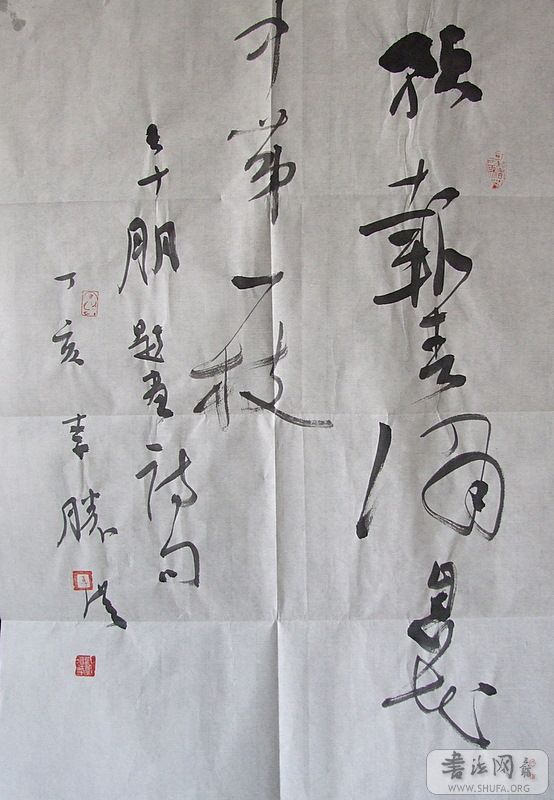 預報春消息花
中第一枝
王十朋題畫詩句
丁亥李勝洪
書法网
WWW.SHUFA.ORG